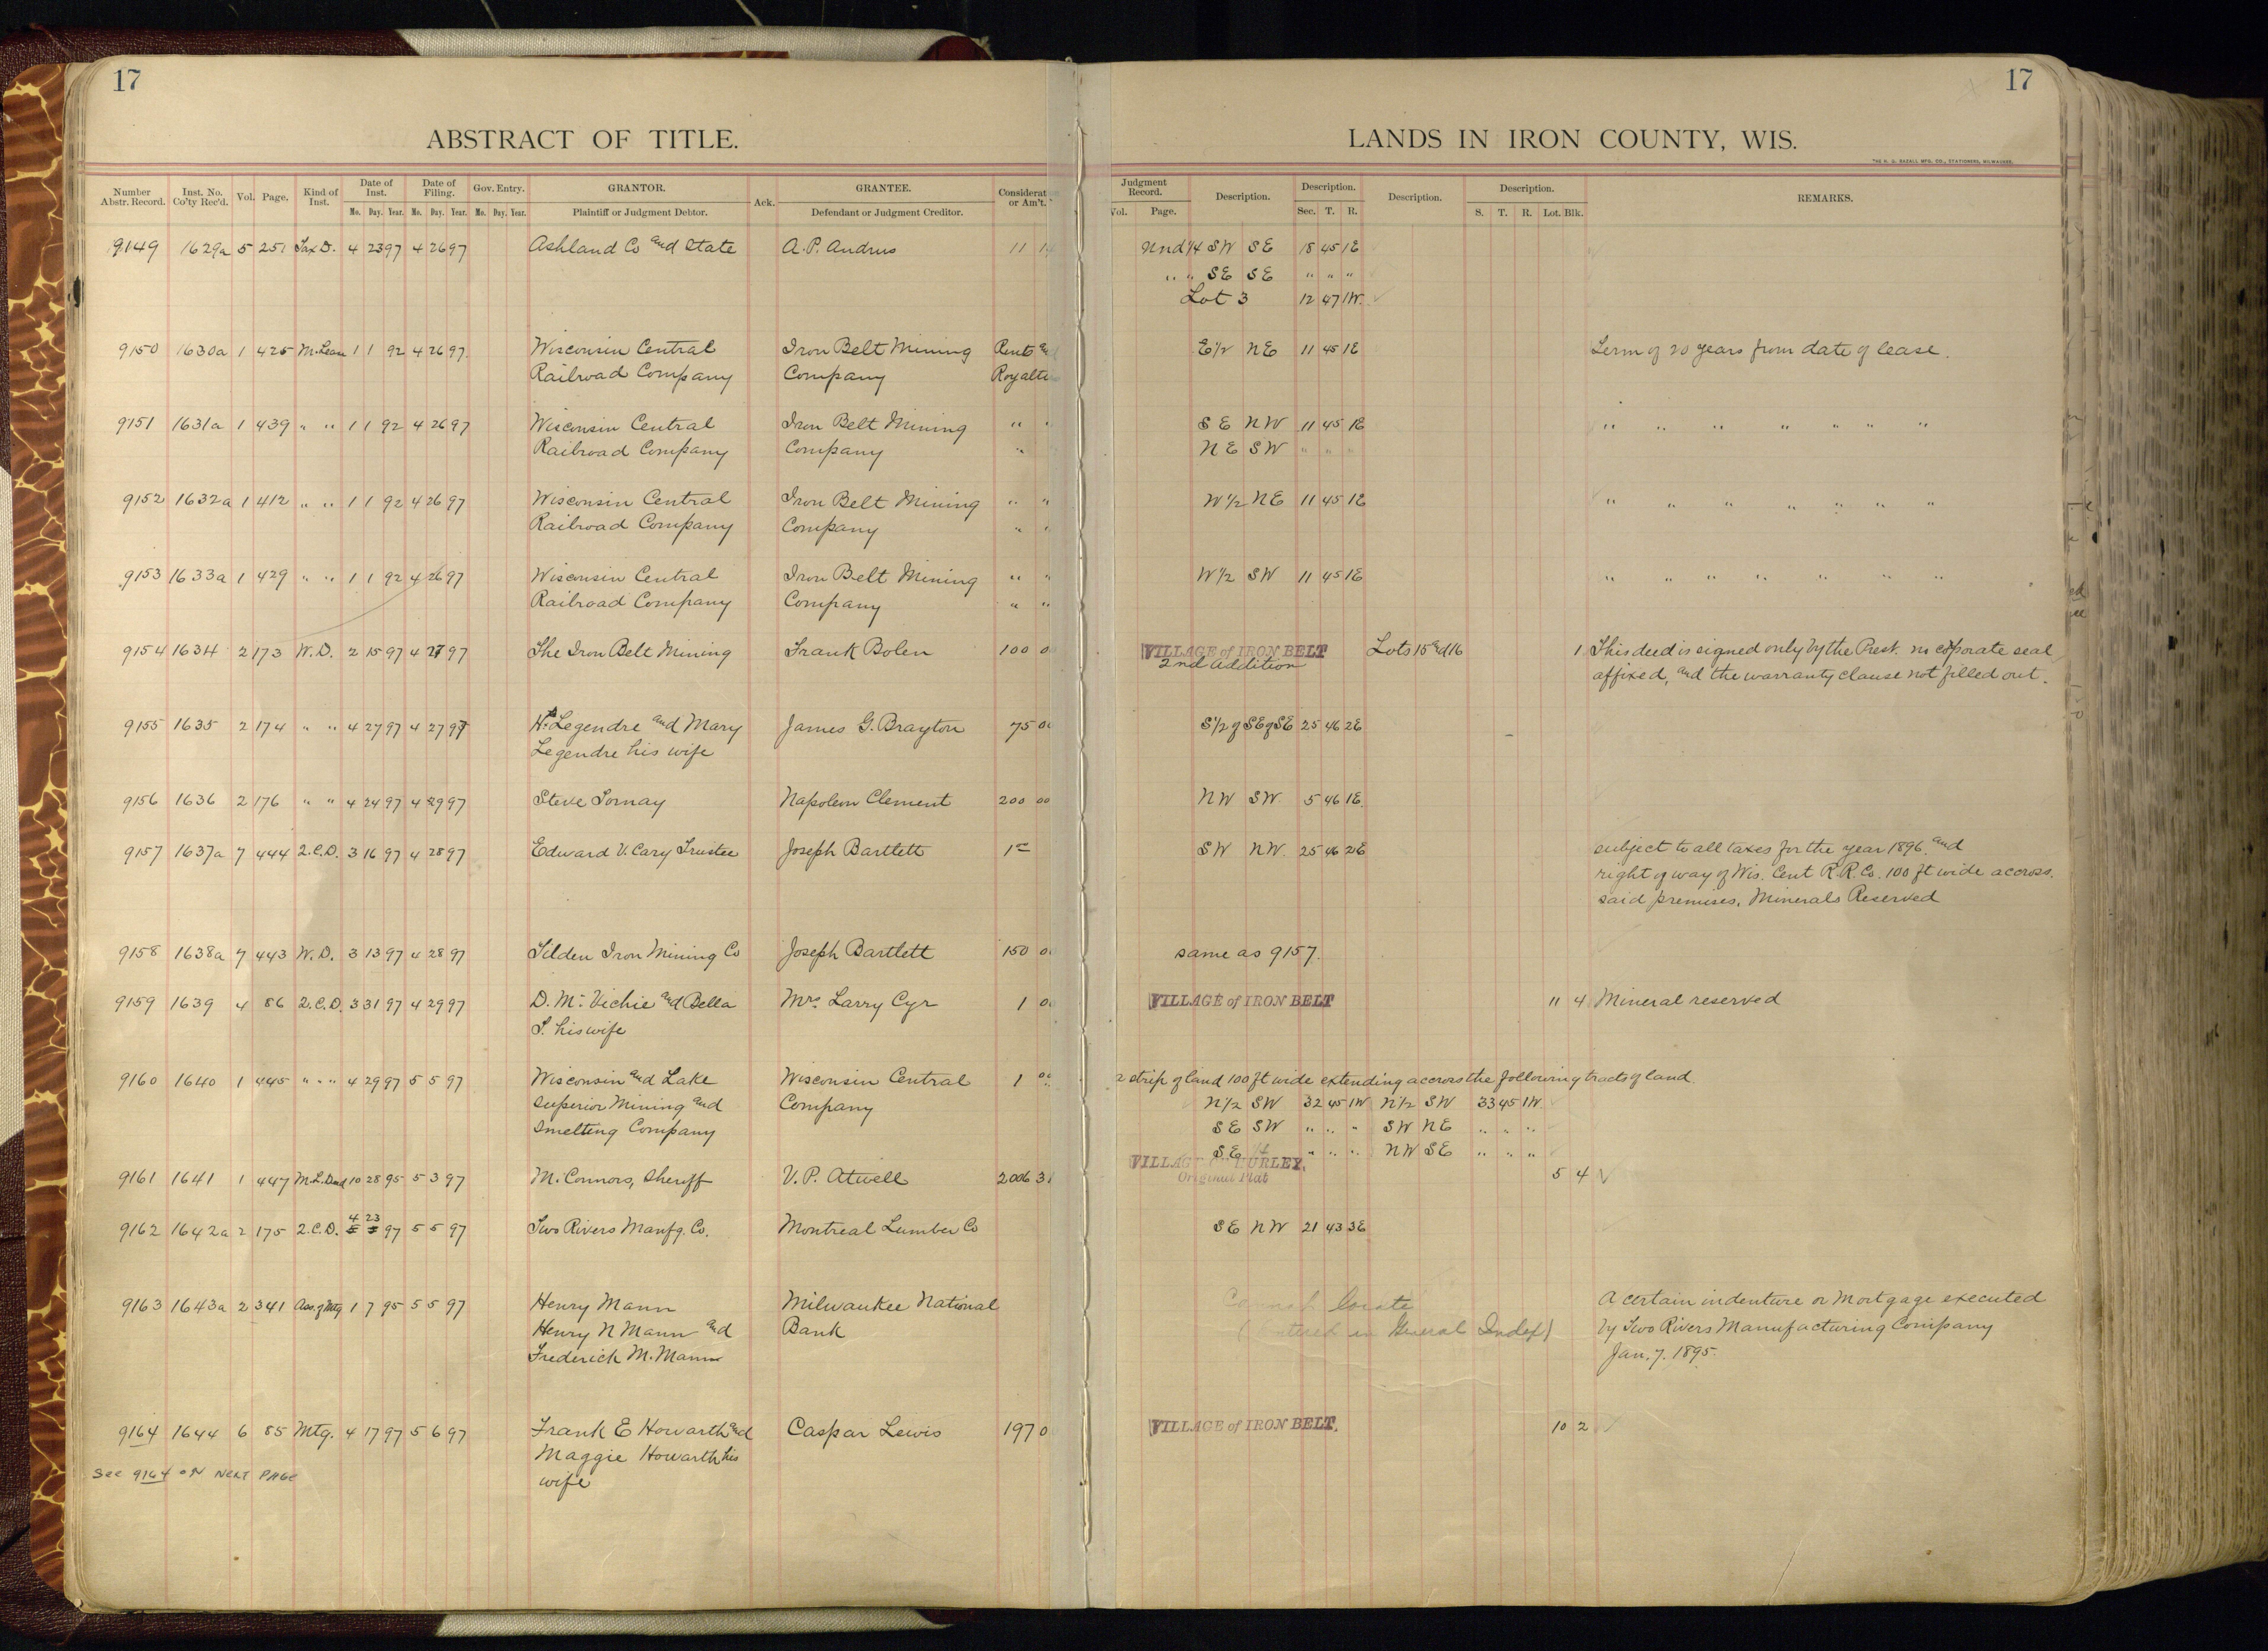 17
17
ABSTRACT OF TITLE.
LANDS IN IRON COUNTY, WIS.
Number Abstr. Record. Inst. No. Co'ty Rec'd. Vol. Page. Kind of Inst. Date of Inst. Mo. Day. Year. Date of Filing. Mo. Day. Year. Gov. Entry. Mo. Day. Year. GRANTOR. Plaintiff or Judgment Debtor. Ack. GRANTEE. Defendant or Judgment Creditor. Considerat or Am't.
Judgment Record. Vol. Page. Description. Description. Sec. T. R. Description. Description. S. T. R. Lot. Blk. REMARKS.
9149 1629a 5 251 Tax D. 4 23 97 4 26 97 Ashland Co and State A. P. Andrus 11 Und 1/4 SW SE 18 45 1E
" " SE SE " " "
Lot 3 12 47 1W.
9150 1630a 1 425 M. Lease 1 1 92 4 26 97 Wisconsin Central Iron Belt Mining Rents and E 1/2 NE 11 45 1E Term of 20 years from date of lease.
Railroad Company Company Royalti
9151 1631a 1 439 " " 1 1 92 4 26 97 Wisconsin Central Iron Belt Mining " " SE NW 11 45 1E " " " " " " "
Railroad Company Company " NE SW " " "
9152 1632a 1 412 " " 1 1 92 4 26 97 Wisconsin Central Iron Belt Mining " " W 1/2 NE 11 45 1E " " " " " " "
Railroad Company Company " "
9153 1633a 1 429 " " 1 1 92 4 26 97 Wisconsin Central Iron Belt Mining " " W 1/2 SW 11 45 1E " " " " " " "
Railroad Company Company " "
9154 1634 2 173 W. D. 2 15 97 4 27 97 The Iron Belt Mining Frank Bolen 100 0 VILLAGE of IRON BELT Lots 15 and 16 1 This deed is signed only by the Prest. no coporate seal
2nd Addition affixed, and the warranty clause not filled out.
9155 1635 2 174 " " 4 27 97 4 27 97 Legendre and Mary James G. Brayton 75 00 S 1/2 of SE of SE 25 46 2E
Legendre his wife
9156 1636 2 176 " " 4 24 97 4 29 97 Steve Tornay Napoleon Clement 200 00 NW SW 5 46 1E.
9157 1637a 7 444 Q.C.D. 3 16 97 4 28 97 Edward V. Cary Trustee Joseph Bartlett 1 SW NW. 25 46 2E subject to all taxes for the year 1896. and
right of way of Wis. Cent R.R. Co. 100 ft wide accross.
said premises. Minerals Reserved
9158 1638a 7 443 W. D. 3 13 97 4 28 97 Tilden Iron Mining Co Joseph Bartlett 150 0 same as 9157.
9159 1639 4 86 Q.C.D. 3 31 97 4 29 97 D. Mc Vichie and Bella Mrs. Larry Cyr 1 0 VILLAGE of IRON BELT 11 4 Mineral reserved
S. his wife
9160 1640 1 445 " " " 4 29 97 5 5 97 Wisconsin and Lake Wisconsin Central 1 00 strip of land 100 ft wide extending accross the following tracts of land.
Superior Mining and Company N 1/2 SW 32 45 1W N 1/2 SW 33 45 1W
Smelting Company SE SW " " " SW NE " " "
SE " " " NW SE " " "
9161 1641 1 447 M. L. Deed 10 28 95 5 3 97 M. Connors, Sheriff V. P. Atwell 2006 3 VILLAGE OF HURLEY. 5 4
Original Plat
9162 1642a 2 175 Q.C.D. 4 23 97 5 5 97 Two Rivers Manfg. Co. Montreal Lumber Co SE NW 21 43 3E
9163 1643a 2 341 Ass. of Mtg 1 7 95 5 5 97 Henry Mann Milwaukee National Cannot locate A certain indenture or Mortgage executed
Henry N Mann and Bank (Entered in General Index) by Two Rivers Manufacturing Company
Frederick M. Mann Jan. 7. 1895.
9164 1644 6 85 Mtg. 4 17 97 5 6 97 Frank E Howarth and Caspar Lewis 197 0 VILLAGE of IRON BELT. 10 2
Maggie Howarth his
wife
See 9164 ON NEXT PAGE